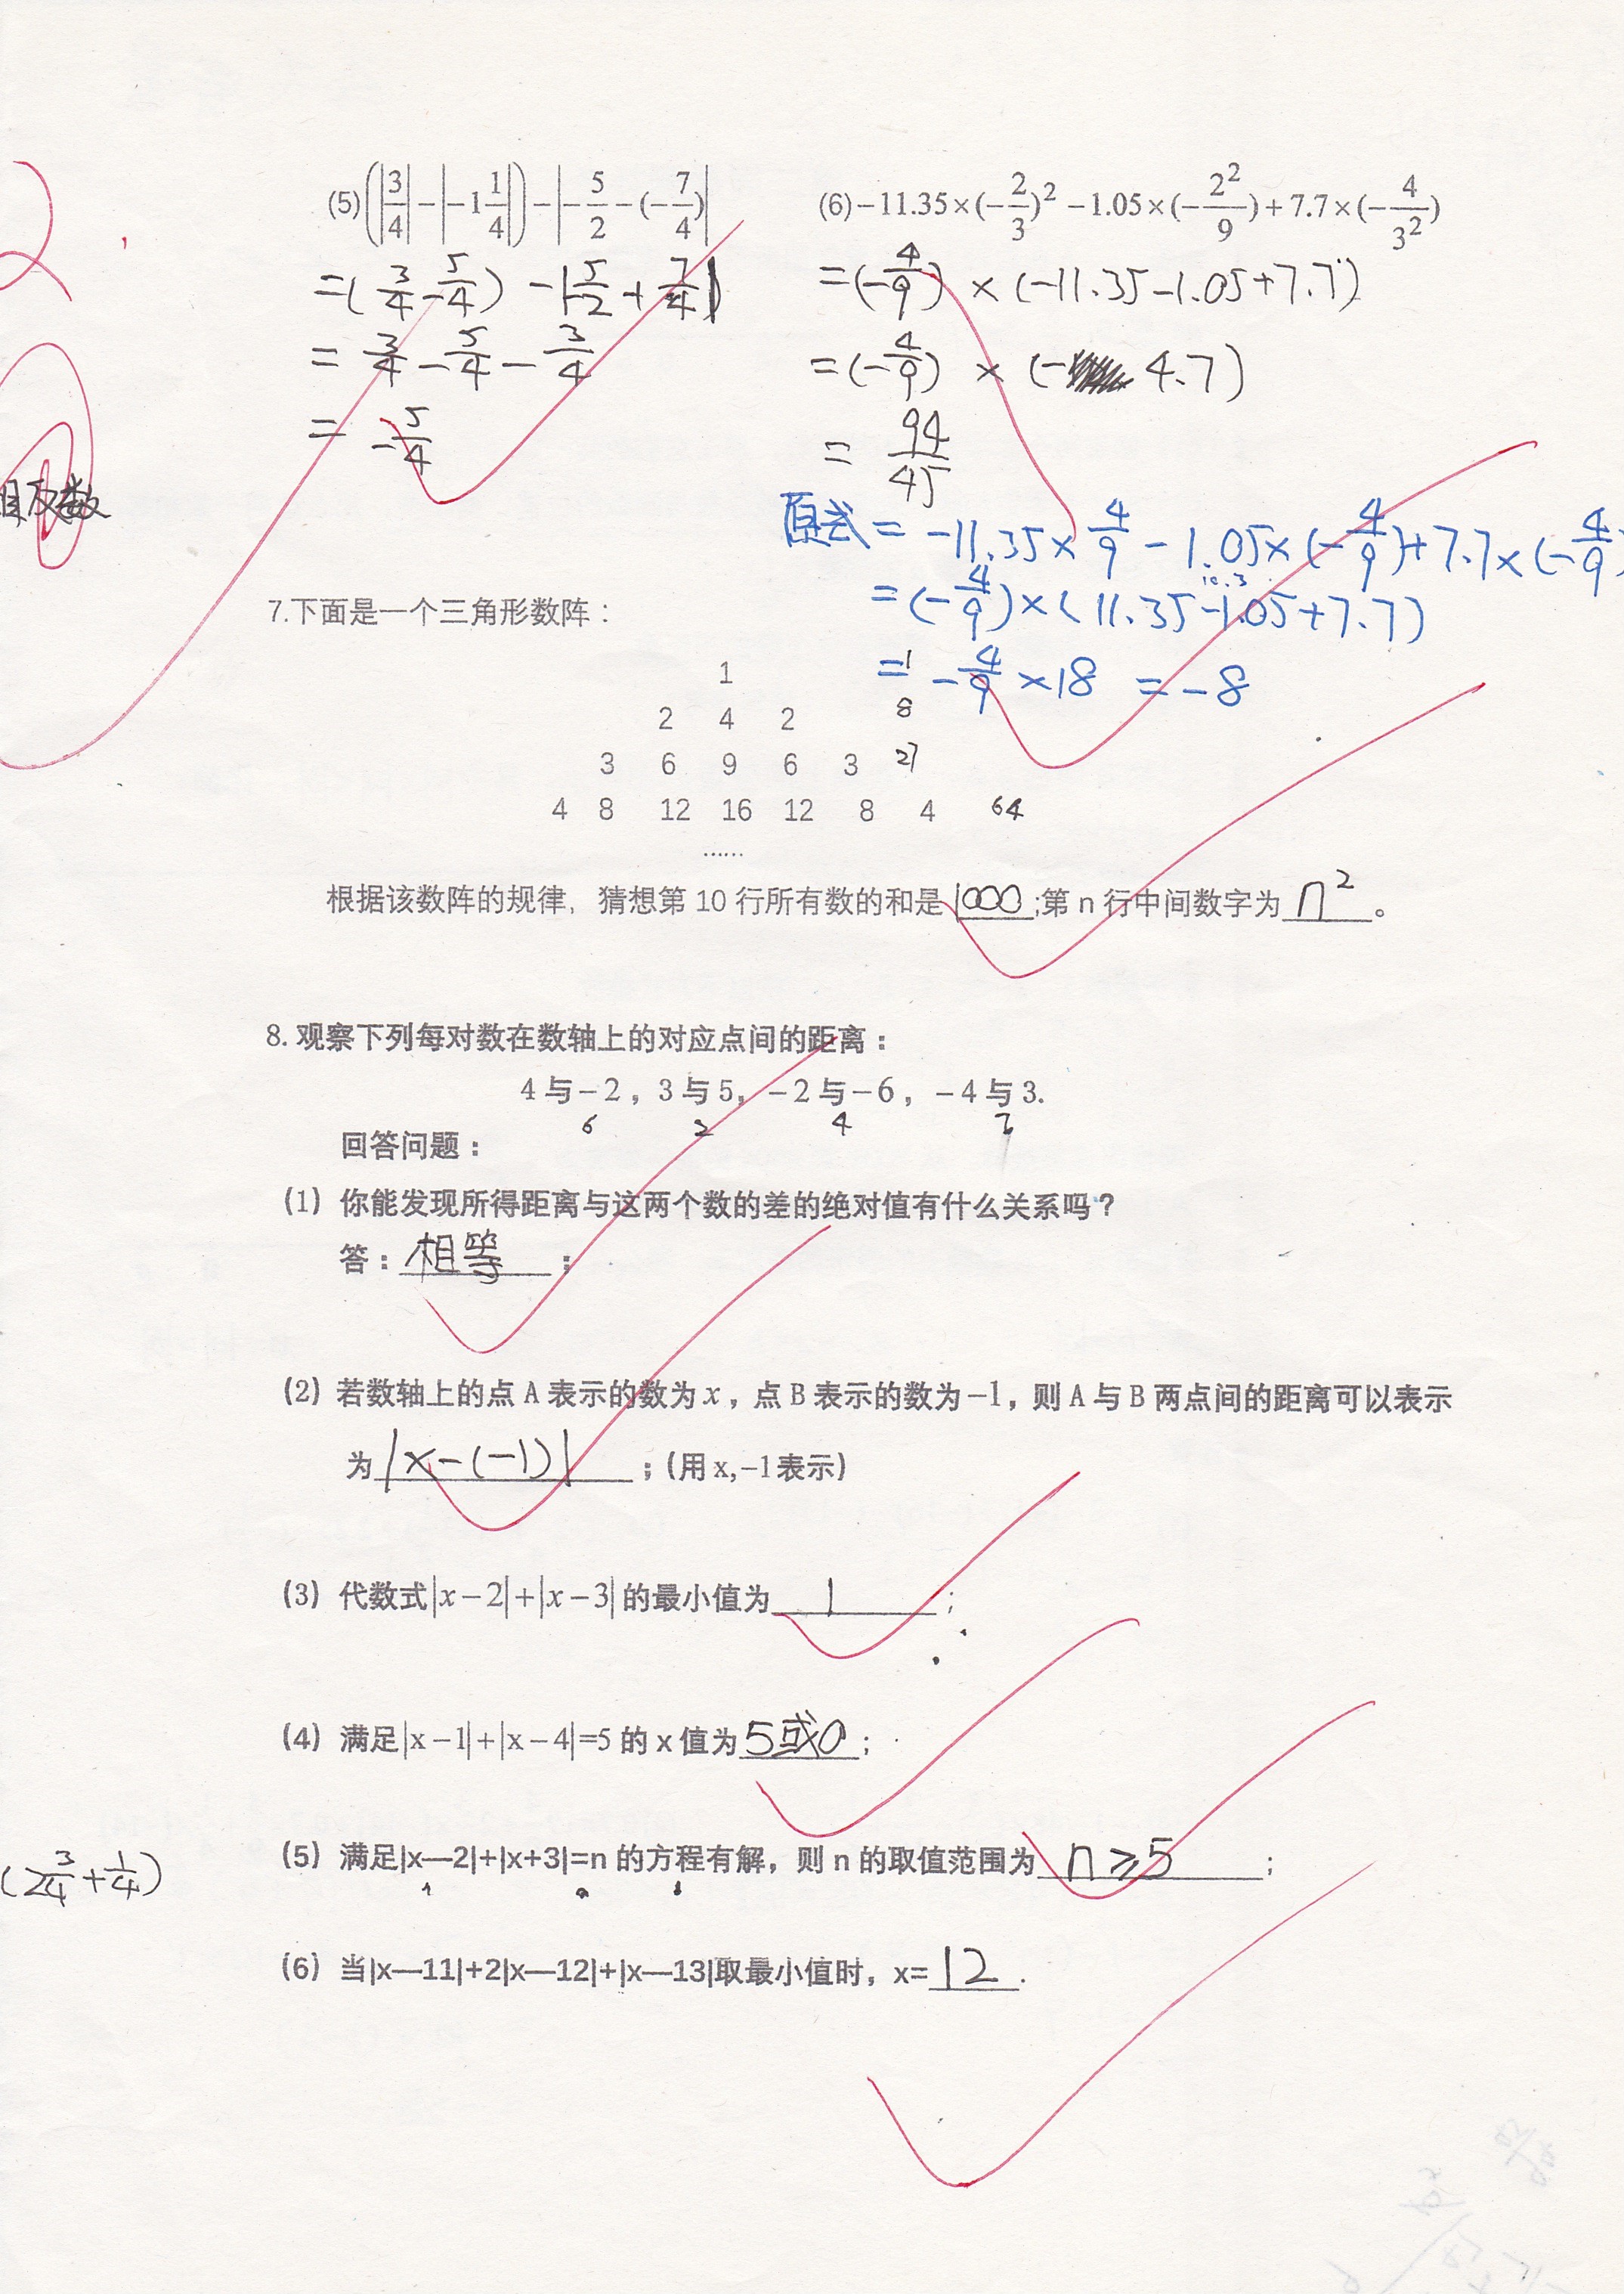 (5)(|3/4|-|-1 1/4|)-|-5/2-(-7/4)|
=(3/4-5/4)-|-5/2+7/4|
=3/4-5/4-3/4
=-5/4
(6)-11.35×(-2/3)²-1.05×(-2²/9)+7.7×(-4/3²)
=(-4/9)×(-11.35-1.05+7.7)
=(-4/9)×(-4.7)
=94/45
原式=-11.35×4/9-1.05×(-4/9)+7.7×(-4/9)
=(-4/9)×(11.35-1.05+7.7)
10.3
=-4/9×18=-8
相反数
7.下面是一个三角形数阵：
1 1
2 4 2 8
3 6 9 6 3 27
4 8 12 16 12 8 4 64
……
根据该数阵的规律，猜想第 10 行所有数的和是1000;第 n 行中间数字为n²。
8.观察下列每对数在数轴上的对应点间的距离：
4与-2，3与5，-2与-6，-4与3.
6 2 4 7
回答问题：
(1) 你能发现所得距离与这两个数的差的绝对值有什么关系吗？
答：相等；
(2) 若数轴上的点 A 表示的数为x，点 B 表示的数为-1，则 A 与 B 两点间的距离可以表示
为|x-(-1)|；(用 x,-1 表示)
(3) 代数式|x-2|+|x-3|的最小值为1；
(4) 满足|x-1|+|x-4|=5 的 x 值为5或0；
(2 3/4+1/4)
(5) 满足|x—2|+|x+3|=n 的方程有解，则 n 的取值范围为n≥5；
(6) 当|x—11|+2|x—12|+|x—13|取最小值时，x=12.